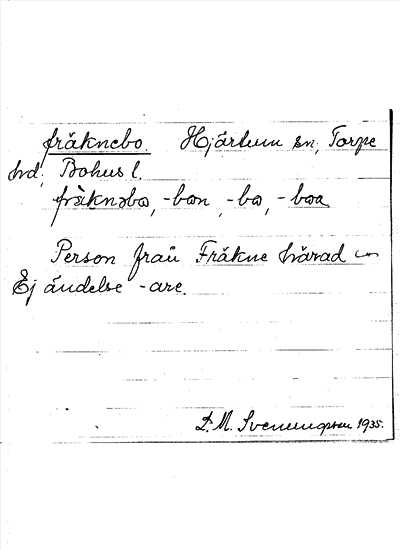 fräknebo. Hjärtum sn, Torpe
hd, Bohus l.
fräknəbo, -bon, -bo, -boa
Person från Fräkne härad
Ej ändelse -are.
D. M. Svenungsson 1935.